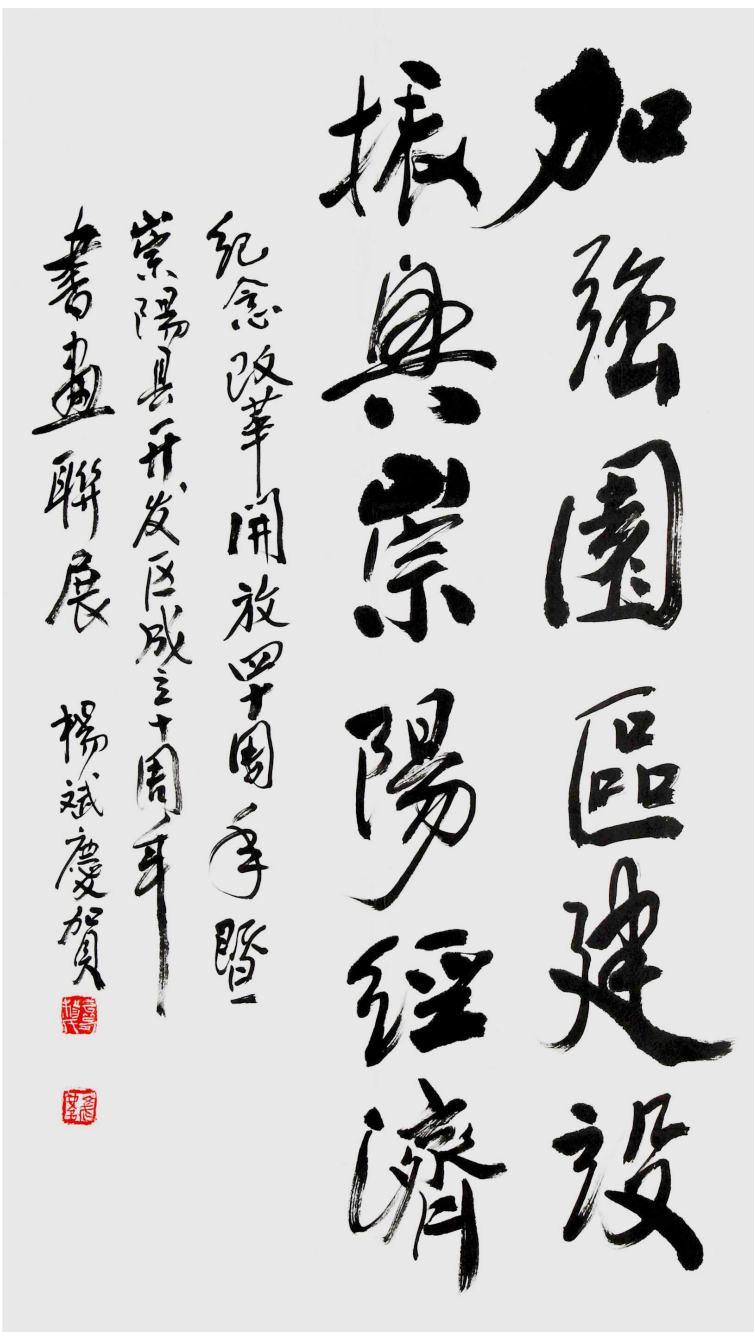 加強園區建設
振興崇陽經濟
纪念改革開放四十周年暨
崇陽县开发区成立十周年
書畫聯展 楊斌慶賀